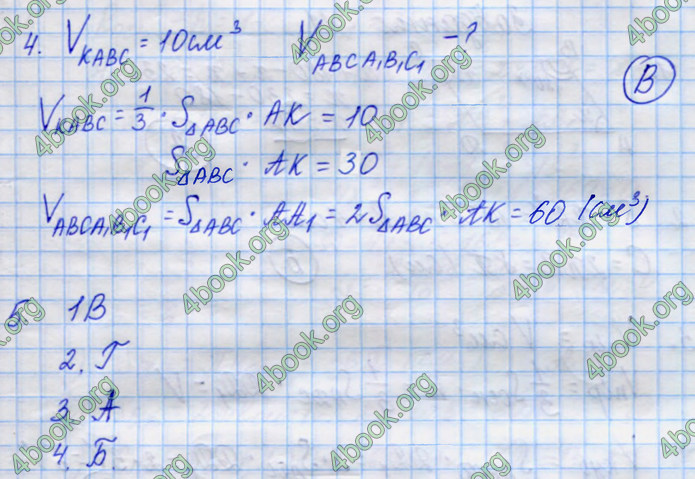 4. V_KABC = 10 см³ V_ABCA₁B₁C₁ - ?
В
V_KABC = 1/3 · S_ΔABC · AK = 10
S_ΔABC · AK = 30
V_ABCA₁B₁C₁ = S_ΔABC · AA₁ = 2S_ΔABC · AK = 60 (см³)
5. 1 В
2. Г
3. А
4. Б.
4book.org